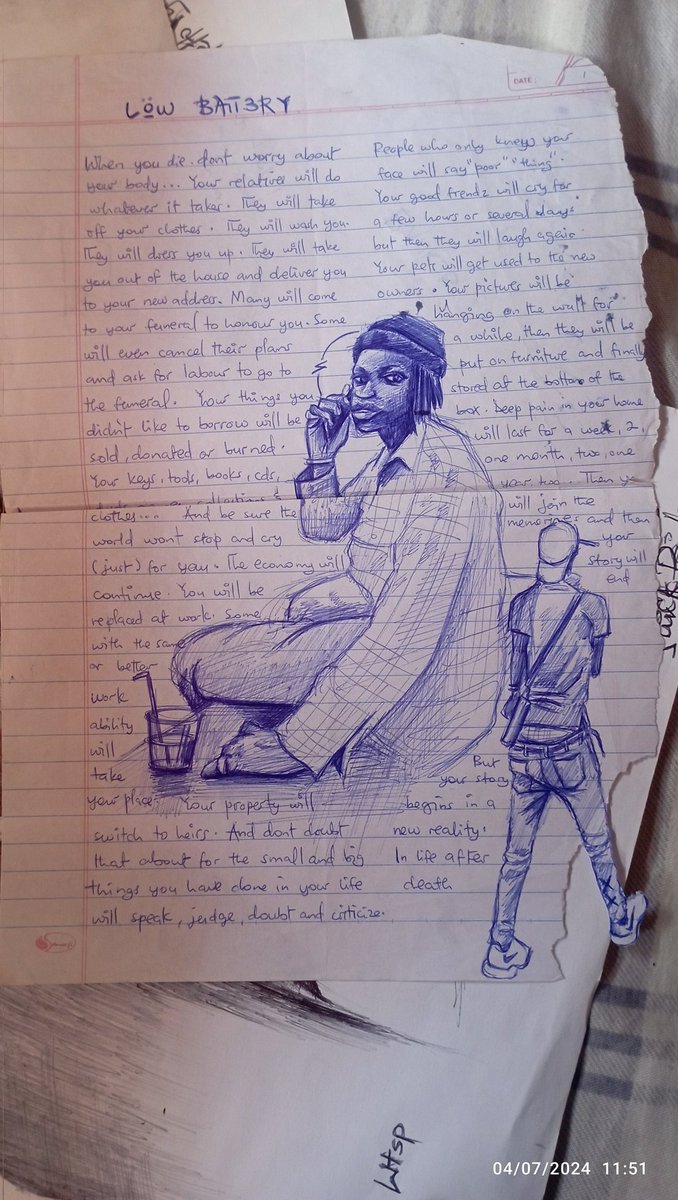 DATE:
LÖW BATT3RY
When you die. dont worry about
your body... Your relatives will do
whatever it takes. They will take
off your clothes. They will wash you.
They will dress you up. They will take
you out of the house and deliver you
to your new address. Many will come
to your funeral to honour you. Some
will even cancel their plans
and ask for labour to go to
the funeral. Your things you
didn't like to borrow will be
sold, donated or burned.
Your keys, tools, books, cds,
clothes.... And be sure the
world wont stop and cry
(just) for you. The economy will
continue. You will be
replaced at work. Some
with the same
or better
work
ability
will
take
your place. Your property will
switch to heirs. And dont doubt
that about for the small and big
things you have done in your life
will speak, judge, doubt and criticize.
People who only knews your
face will say "poor" "thing".
Your good frendz will cry for
a few hours or several days
but then they will laugh again.
Your pets will get used to the new
owners. Your pictures will be
hanging on the wall for
a while, then they will be
put on furniture and finally
stored at the bottom of the
box. Deep pain in your home
will last for a week, 2,
one month, two, one
year, two. Then
will join the
memories and then
your
story will
end
But
your story
begins in a
new reality.
In life after
death
WHsp
04/07/2024 11:51